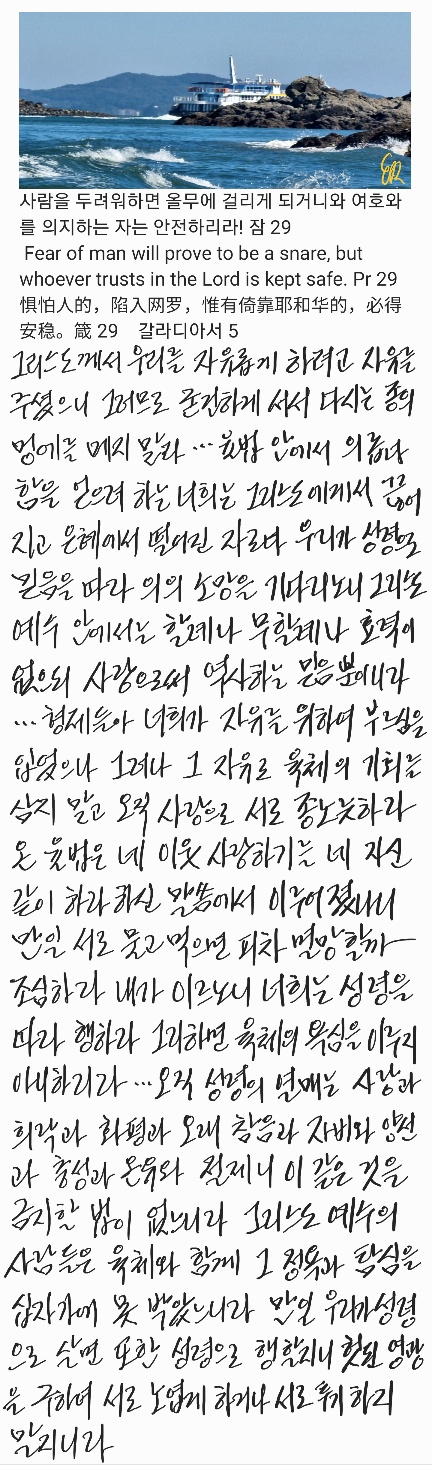 사람을 두려워하면 올무에 걸리게 되거니와 여호와
를 의지하는 자는 안전하리라! 잠 29
Fear of man will prove to be a snare, but
whoever trusts in the Lord is kept safe. Pr 29
惧怕人的，陷入网罗，惟有倚靠耶和华的，必得
安稳。箴 29 갈라디아서 5
그리스도께서 우리를 자유롭게 하려고 자유를
주셨으니 그러므로 굳건하게 서서 다시는 종의
멍에를 메지 말라 … 율법 안에서 의롭다
함을 얻으려 하는 너희는 그리스도에게서 끊어
지고 은혜에서 떨어진 자로다 우리가 성령으로
믿음을 따라 의의 소망을 기다리노니 그리스도
예수 안에서는 할례나 무할례나 효력이
없으되 사랑으로써 역사하는 믿음뿐이니라
… 형제들아 너희가 자유를 위하여 부르심을
입었으나 그러나 그 자유로 육체의 기회를
삼지 말고 오직 사랑으로 서로 종노릇하라
온 율법은 네 이웃 사랑하기를 네 자신
같이 하라 하신 말씀에서 이루어졌나니
만일 서로 물고 먹으면 피차 멸망할까
조심하라 내가 이르노니 너희는 성령을
따라 행하라 그리하면 육체의 욕심을 이루지
아니하리라 … 오직 성령의 열매는 사랑과
희락과 화평과 오래 참음과 자비와 양선
과 충성과 온유와 절제니 이 같은 것을
금지할 법이 없느니라 그리스도 예수의
사람들은 육체와 함께 그 정욕과 탐심을
십자가에 못 박았느니라 만일 우리가 성령
으로 살면 또한 성령으로 행할지니 헛된 영광
을 구하여 서로 노엽게 하거나 서로 투기하지
말지니라